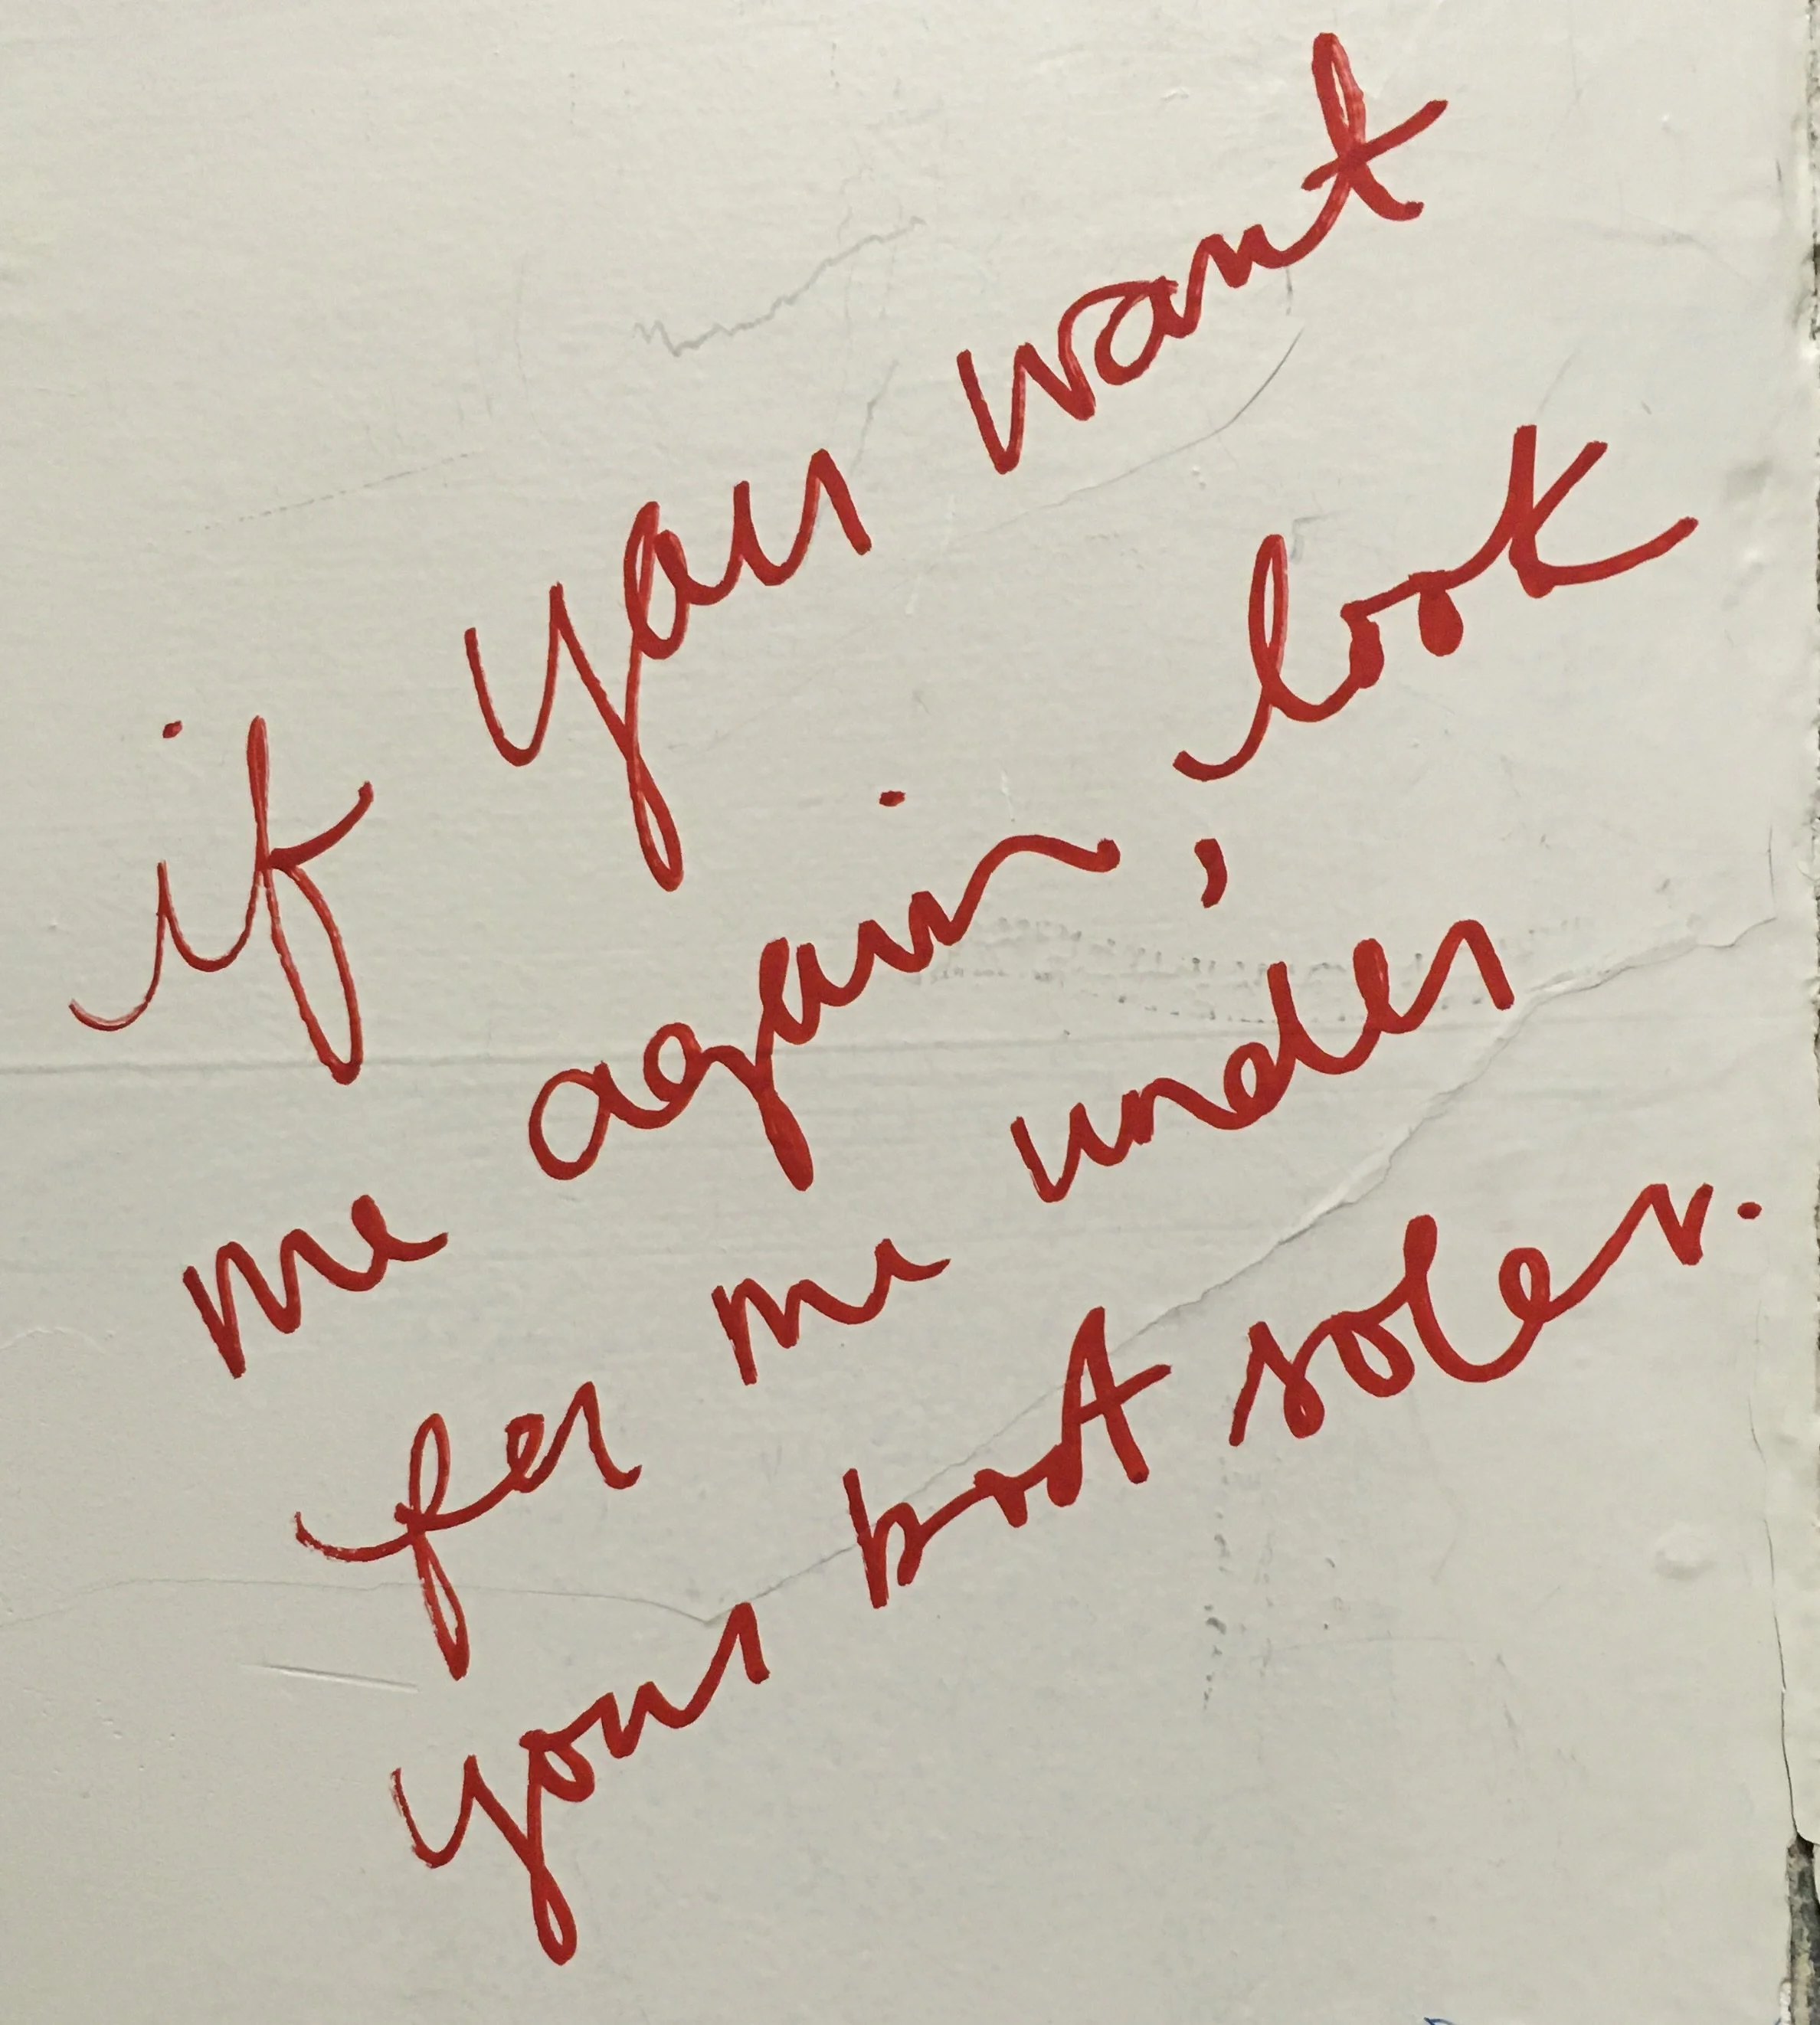 if you want
me again, look
for me under
your boot soles.